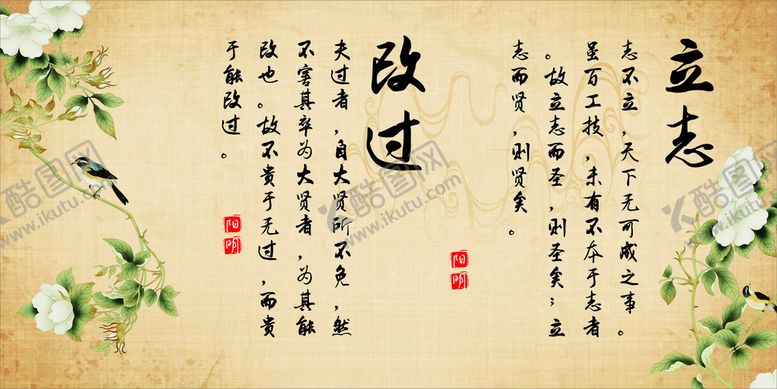 立志
志不立，天下无可成之事。
虽百工技，未有不本于志者
。故立志而圣，则圣矣；立
志而贤，则贤矣。
阳明
改过
夫过者，自大贤所不免，然
不害其卒为大贤者，为其能
改也。故不贵于无过，而贵
于能改过。
阳明
酷图网
www.ikutu.com
酷图网
www.ikutu.com
酷图网
www.ikutu.com
酷图网
www.ikutu.com